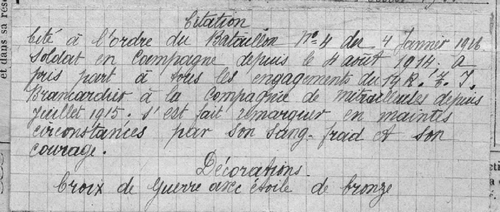 et dans sa rése
Citation
Cité à l'ordre du Bataillon No 4 du 4 Janvier 1916
Soldat en campagne depuis le 4 août 1914. a
pris part à tous les engagements du
Brancardier à la compagnie de mitrailleuses depuis
Juillet 1915. s'est fait remarquer en maintes
circonstances par son sang-froid et son
courage.
Décorations
Croix de Guerre avec étoile de bronze